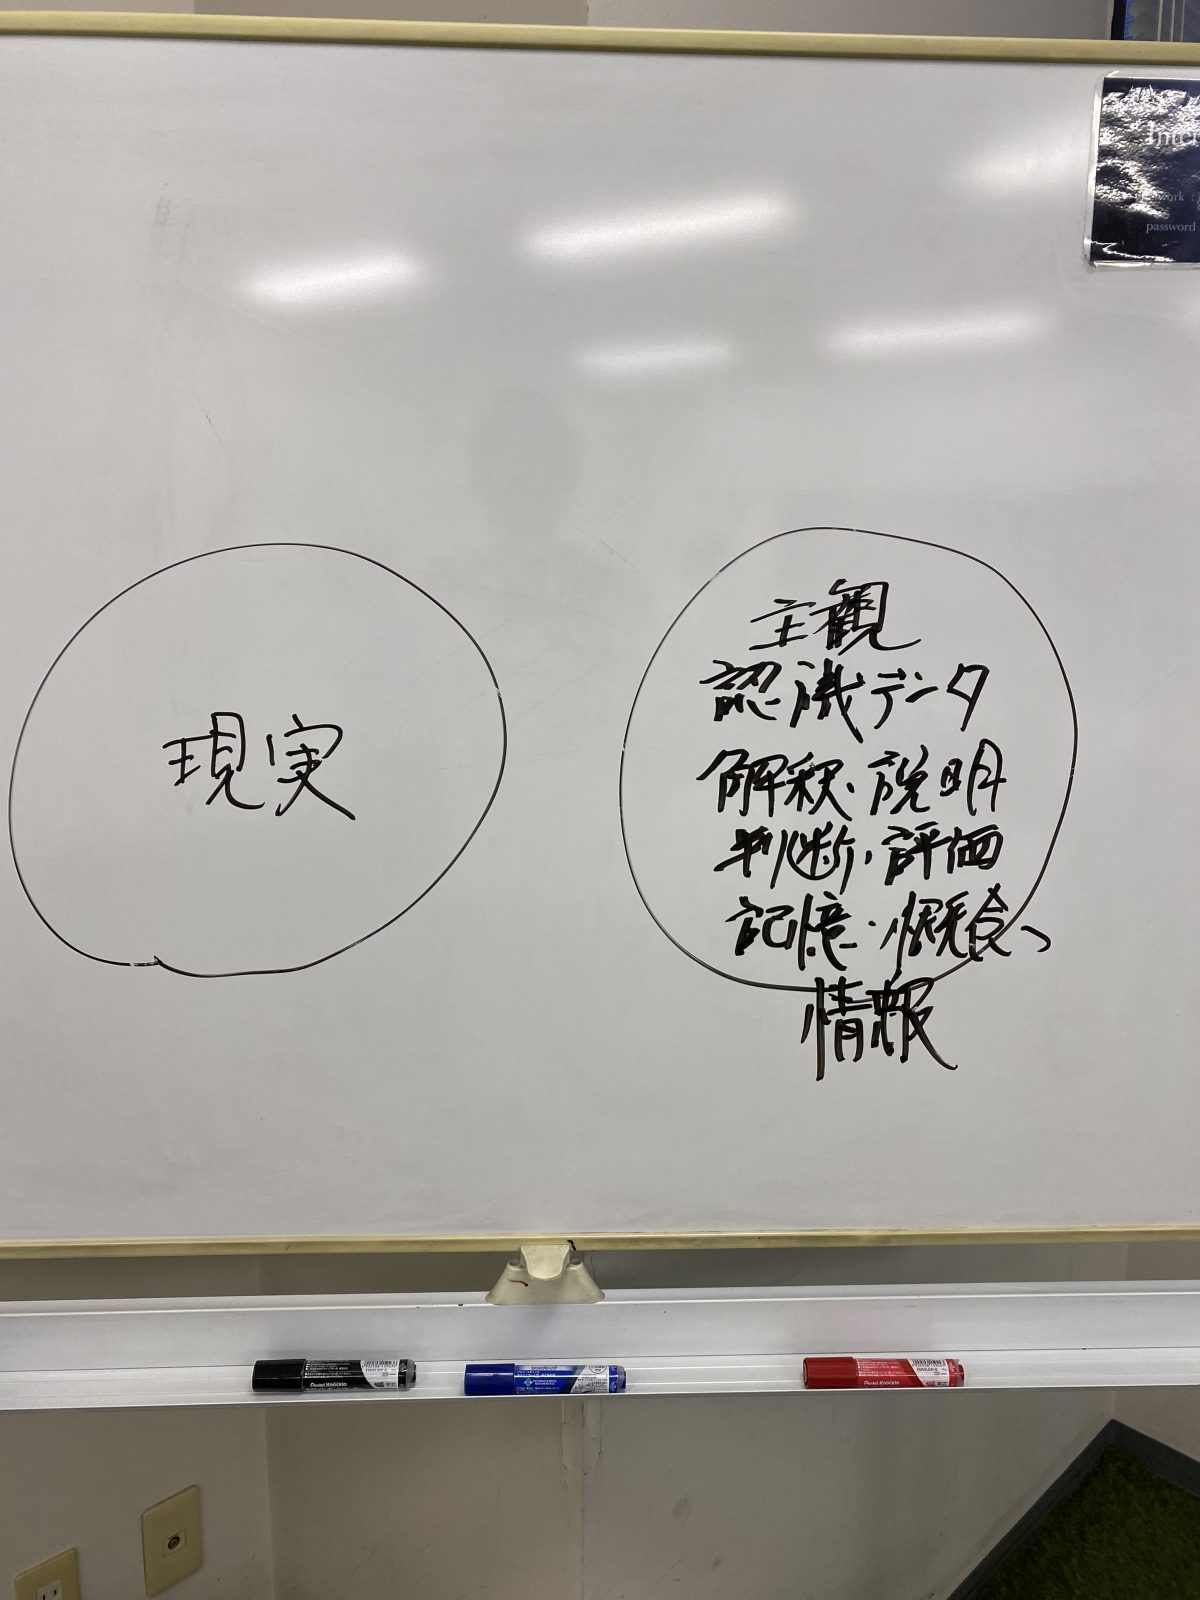 現実
主観
認識データ
解釈・説明
判断・評価
記憶・概念、
情報
Inter
work :
password
Pentel
Pentel